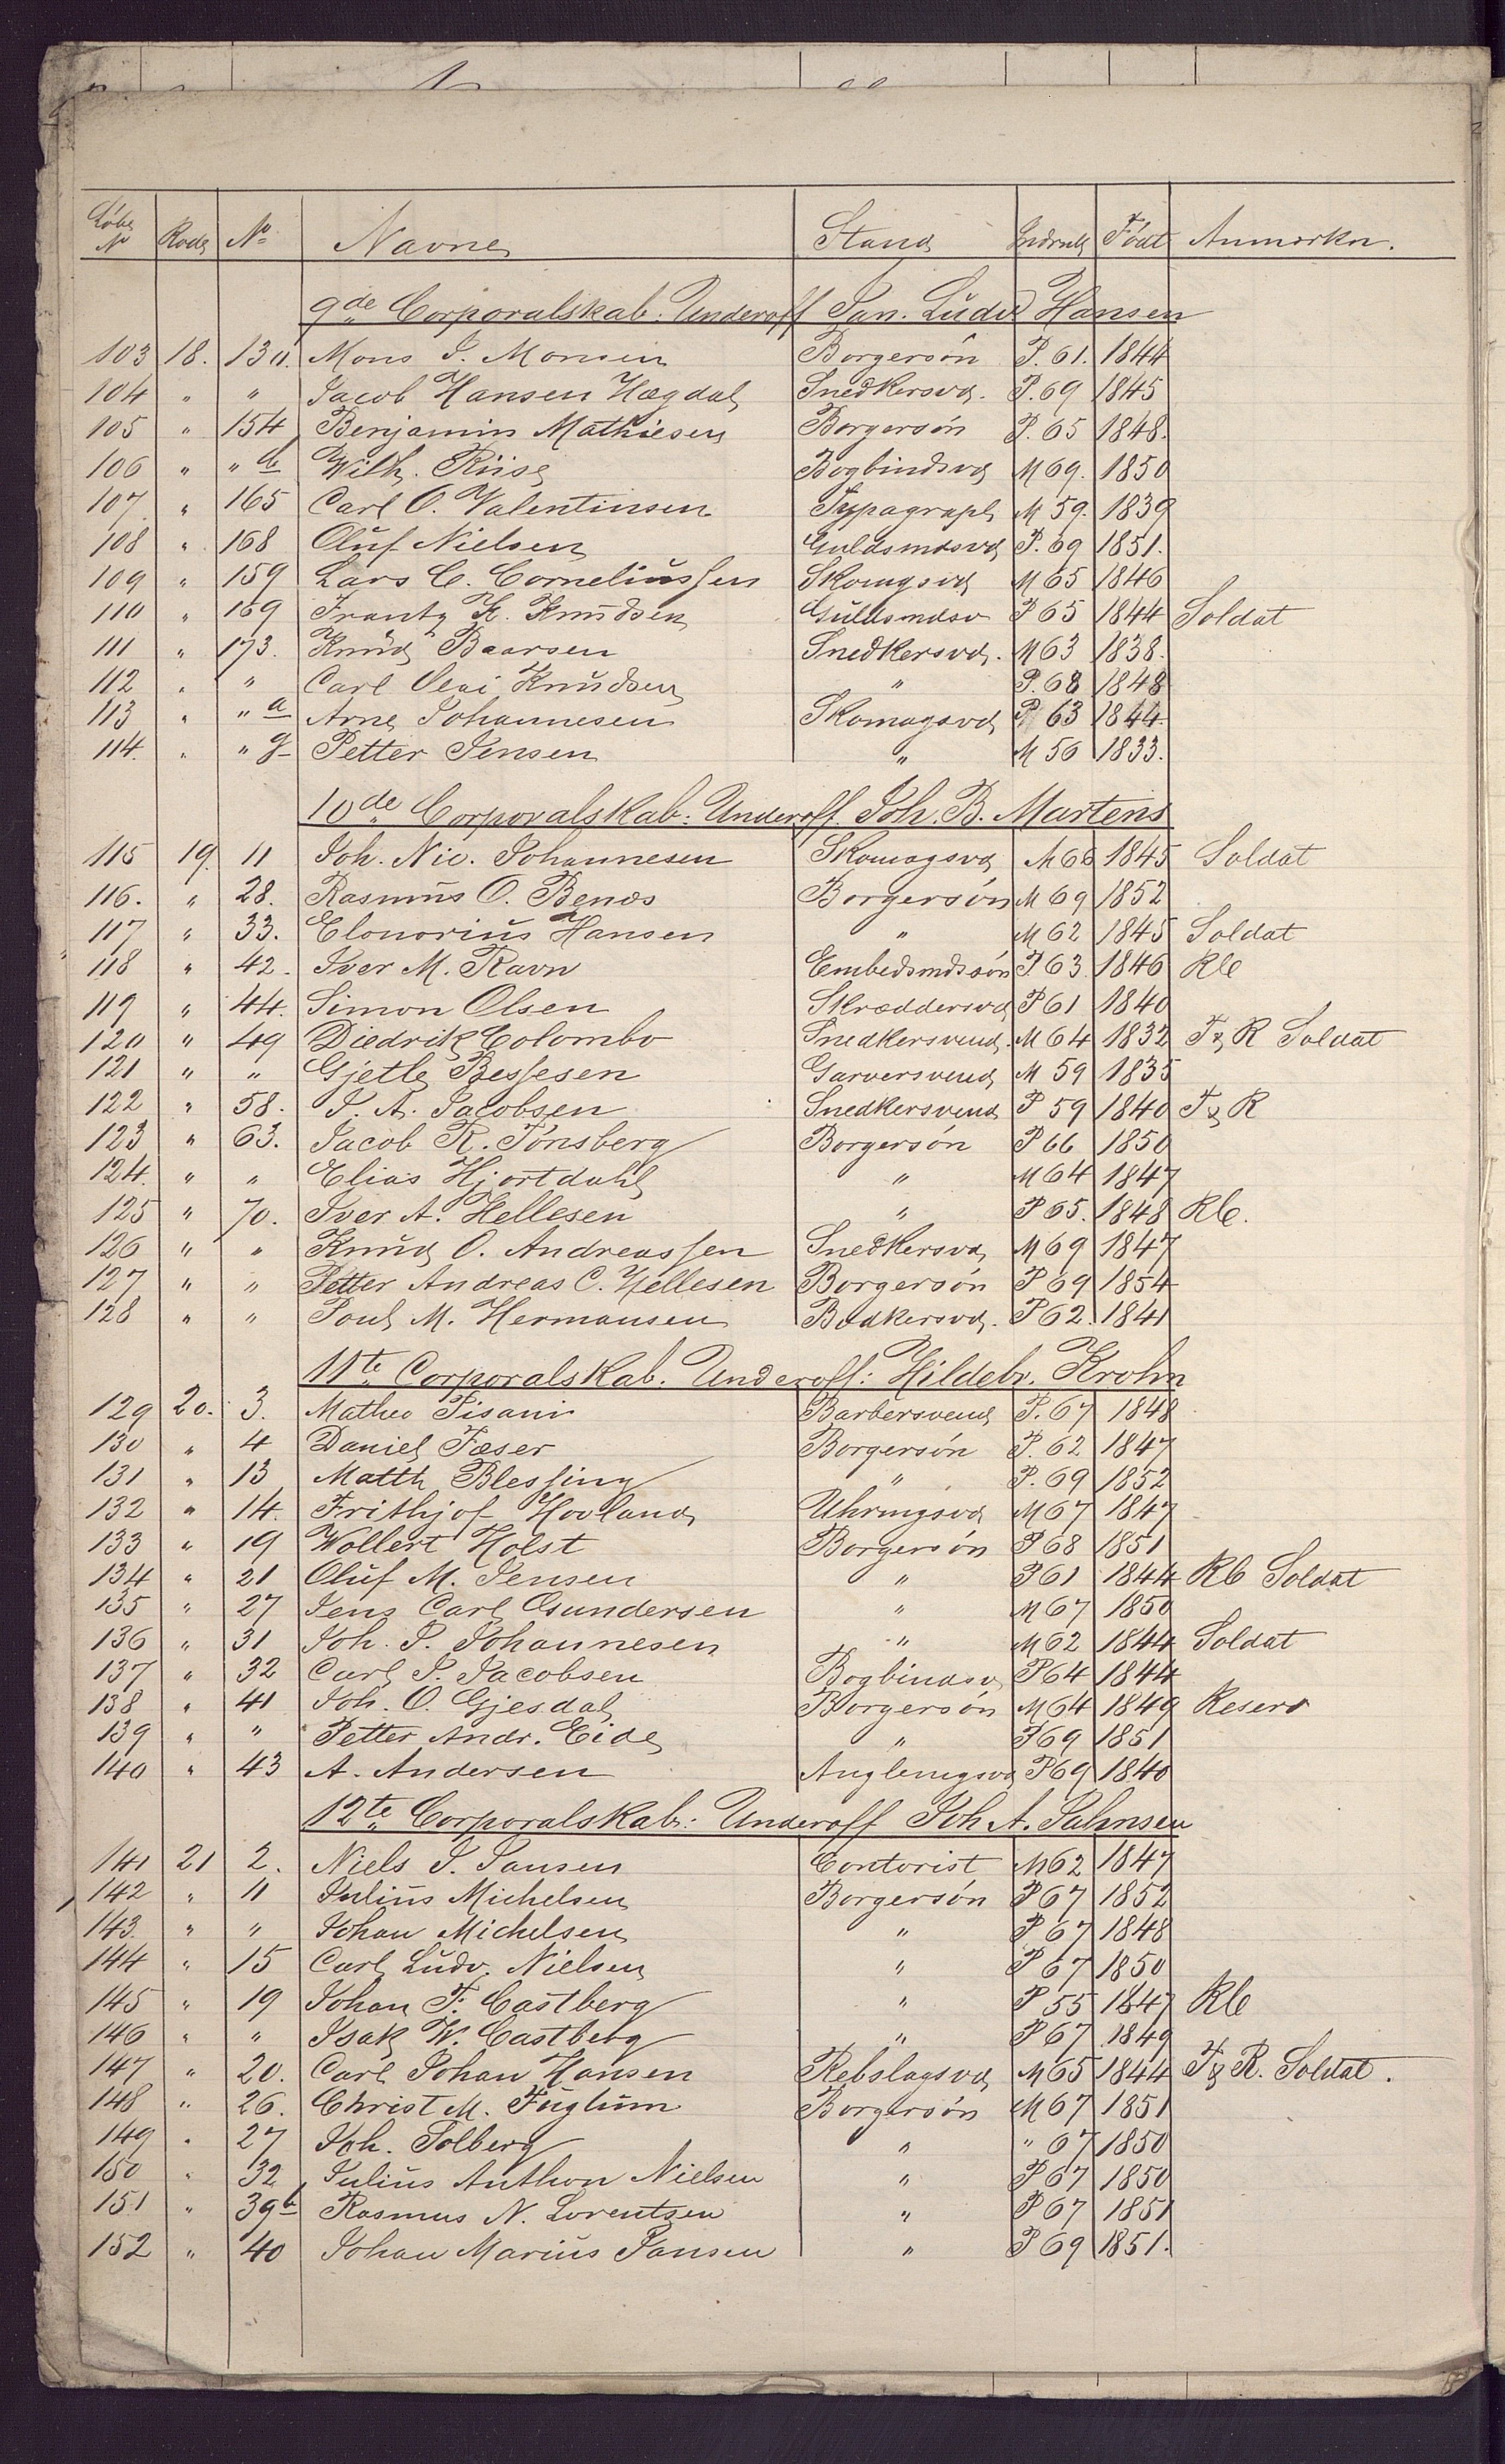 Løbe N° Rode N° Navne Stand Indrull Født Anmærkn.
9de Corporalskab. Underoff Jan. Ludv Hansen
103 18. 130. Mons J. Monsen Borgersøn P. 61. 1844
104 " " Jacob Hansen Hægdal Snedkersvd. P. 69 1845
105 " 154 Benjamin Mathiesen Borgersøn P. 65 1848.
106 " " b Wilh. Riise Bogbindsvd M 69. 1850
107. " 165 Carl O. Valentinsen Typograph M 59. 1839
108 " 168 Oluf Nielsen Guldsmdsvd P. 69 1851.
109 " 159 Lars C. Corneliussen Skomgsvd M 65 1846
110 " 169 Frantz H. Knudsen Guldsmdsv P 65 1844 Soldat
111 " 173. Knud Baarsen Snedkersvd. M 63 1838.
112 " " Carl Olai Knudsen " P. 68 1848
113 " " a Arne Johannesen Skomagsvd P 63 1844.
114. " " g Petter Jensen " M 56 1833.
10de Corporalskab: Underoff. Joh. B. Martens
115 19. 11 Joh. Nic. Johannesen Skomagsvd M 66 1845 Soldat
116. " 28. Rasmus O. Benæs Borgersøn M 69 1852
117 " 33. Elonorius Hansen " M 62 1845 Soldat
118 " 42. Iver M. Ravn Embedsmdssøn P 63 1846 RC
119 " 44. Simon Olsen Skræddersvd P 61 1840
120 " 49 Diedrik Colombo Snedkersvend. M 64 1832 T & R Soldat
121 " " Gjetle Bessesen Garversvend M 59 1835
122 " 58. J. A. Jacobsen Snedkersvend P 59 1840 T & R
123 " 63. Jacob R. Tønsberg Borgersøn P 66 1850
124. " " Elias Hjortdahl " M 64 1847
125 " 70. Iver A. Hellesen " P 65. 1848 RC.
126 " " Knud O. Andreassen Snedkersvd, M 69 1847
127 " " Petter Andreas C. Hellesen Borgersøn P 69 1854
128 " " Poul M. Hermansen Bødkersvd. P 62. 1841
11te Corporalskab. Underoff: Hildebr. Krohn
129 20. 3. Matheo Pisani Barbersvend P. 67 1848
130 " 4 Daniel Fæser Borgersøn P. 62 1847
131 " 13 Matth Blessing " P. 69 1852
132 " 14. Frithjof Hovland Uhrmgsvd M 67 1847
133 " 19 Wollert Holst Borgersøn P 68 1851
134 " 21 Oluf M. Jensen " P 61 1844 RC Soldat
135 " 27 Jens Carl Gundersen " M 67 1850
136 " 31 Joh. P. Johannesen " M 62 1844 Soldat
137 " 32 Carl P. Jacobsen Bogbindsv P 64 1844
138 " 41 Joh. O. Gjesdal Borgersøn M 64 1849 Reserv
139 " " Petter Andr. Eide " P 69 1851
140 " 43 A. Andersen P 69 1840
12te Corporalskab: Underoff Joh A. Jahnsen
141 21 2. Niels J. Jansen Contorist M 62 1847
142 " 11 Julius Michelsen Borgersøn P 67 1852
143. " " Johan Michelsen " P 67 1848
144 " 15 Carl Ludv. Nielsen " P 67 1850
145 " 19 Johan F. Castberg " P 55 1847 RC
146 " " Isak W. Castberg " P 67 1849
147 " 20. Carl Johan Hansen Rebslagsvd M 65 1844 T & R. Soldat.
148 " 26. Christ M. Fuglum Borgersøn M 67 1851
149 " 27 Joh. Solberg " " 67 1850
150 " 32 Julius Anthon Nielsen " P 67 1850
151 " 39b Rasmus N. Lorentzen " P 67 1851
152 " 40 Johan Marius Jansen " P 69 1851.